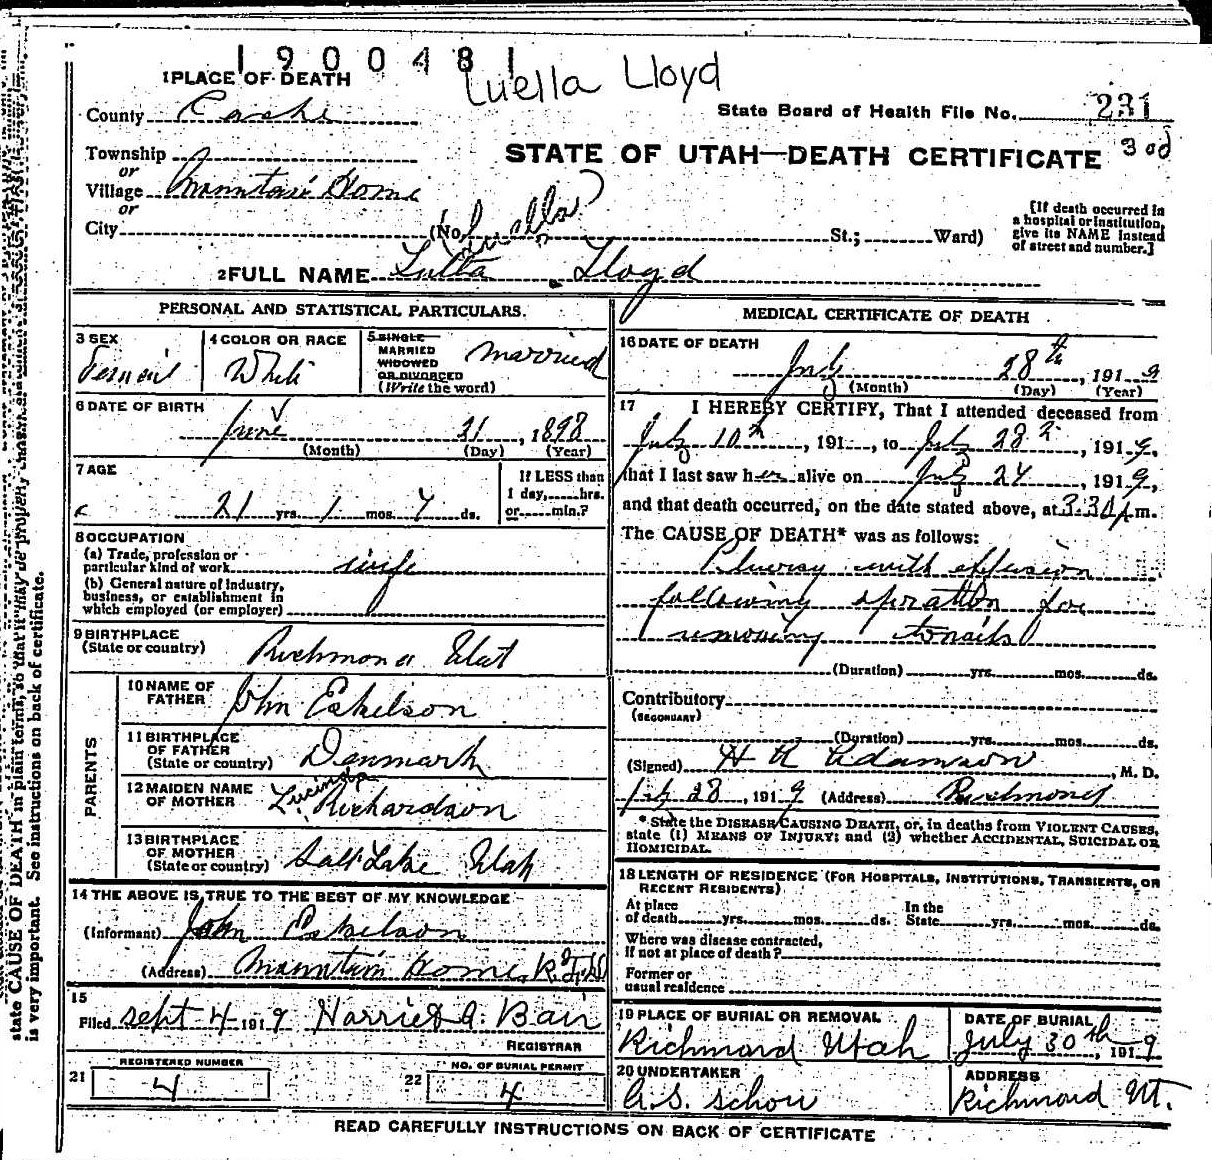 1900481
Luella Lloyd
1 PLACE OF DEATH
County Cache
State Board of Health File No. 231
Township
or
Village Mountain Home
or
City
STATE OF UTAH—DEATH CERTIFICATE 3 od
(No. Luella? St.; Ward)
[If death occurred in
a hospital or institution,
give its NAME instead
of street and number.]
2 FULL NAME Lutta Lloyd
PERSONAL AND STATISTICAL PARTICULARS.
3 SEX
Female
4 COLOR OR RACE
White
5 SINGLE
MARRIED
WIDOWED
OR DIVORCED
(Write the word)
Married
6 DATE OF BIRTH
June 21, 1898
(Month) (Day) (Year)
7 AGE
21 yrs. 1 mos. 7 ds.
If LESS than
1 day, hrs.
or min.?
8 OCCUPATION
(a) Trade, profession or
particular kind of work wife
(b) General nature of industry,
business, or establishment in
which employed (or employer)
9 BIRTHPLACE
(State or country) Richmond Utah
PARENTS
10 NAME OF
FATHER John Eskelson
11 BIRTHPLACE
OF FATHER
(State or country) Denmark
12 MAIDEN NAME
OF MOTHER Lucinda Richardson
13 BIRTHPLACE
OF MOTHER
(State or country) Salt Lake Utah
14 THE ABOVE IS TRUE TO THE BEST OF MY KNOWLEDGE
(Informant) John Eskelson
(Address) Mountain Home R.F.D
15
Filed sept 4 1919 Harriet A. Bair
REGISTRAR
REGISTERED NUMBER
21 4
NO. OF BURIAL PERMIT
22 4
MEDICAL CERTIFICATE OF DEATH
16 DATE OF DEATH
July 28th, 1919
(Month) (Day) (Year)
17 I HEREBY CERTIFY, That I attended deceased from
July 10th, 191 , to July 28th, 1919,
that I last saw her alive on July 24, 1919,
and that death occurred, on the date stated above, at 3.30 p m.
The CAUSE OF DEATH* was as follows:
Pluersy with effusion
following operation for
removing tonsils
(Duration) yrs. mos. ds.
Contributory
(SECONDARY)
(Duration) yrs. mos. ds.
(Signed) H R Adamson, M. D.
July 28, 1919 (Address) Richmond
* State the DISEASE CAUSING DEATH, or, in deaths from VIOLENT CAUSES,
state (1) MEANS OF INJURY; and (2) whether ACCIDENTAL, SUICIDAL OR
HOMICIDAL.
18 LENGTH OF RESIDENCE (FOR HOSPITALS, INSTITUTIONS, TRANSIENTS, OR
RECENT RESIDENTS)
At place
of death yrs. mos. ds.
In the
State yrs. mos. ds.
Where was disease contracted,
if not at place of death?
Former or
usual residence
19 PLACE OF BURIAL OR REMOVAL
Richmond Utah
DATE OF BURIAL
July 30th, 1919
20 UNDERTAKER
A.S. Schow
ADDRESS
Richmond Ut.
READ CAREFULLY INSTRUCTIONS ON BACK OF CERTIFICATE
state CAUSE OF DEATH in plain terms, so that it may be properly
is very important. See instructions on back of certificate.